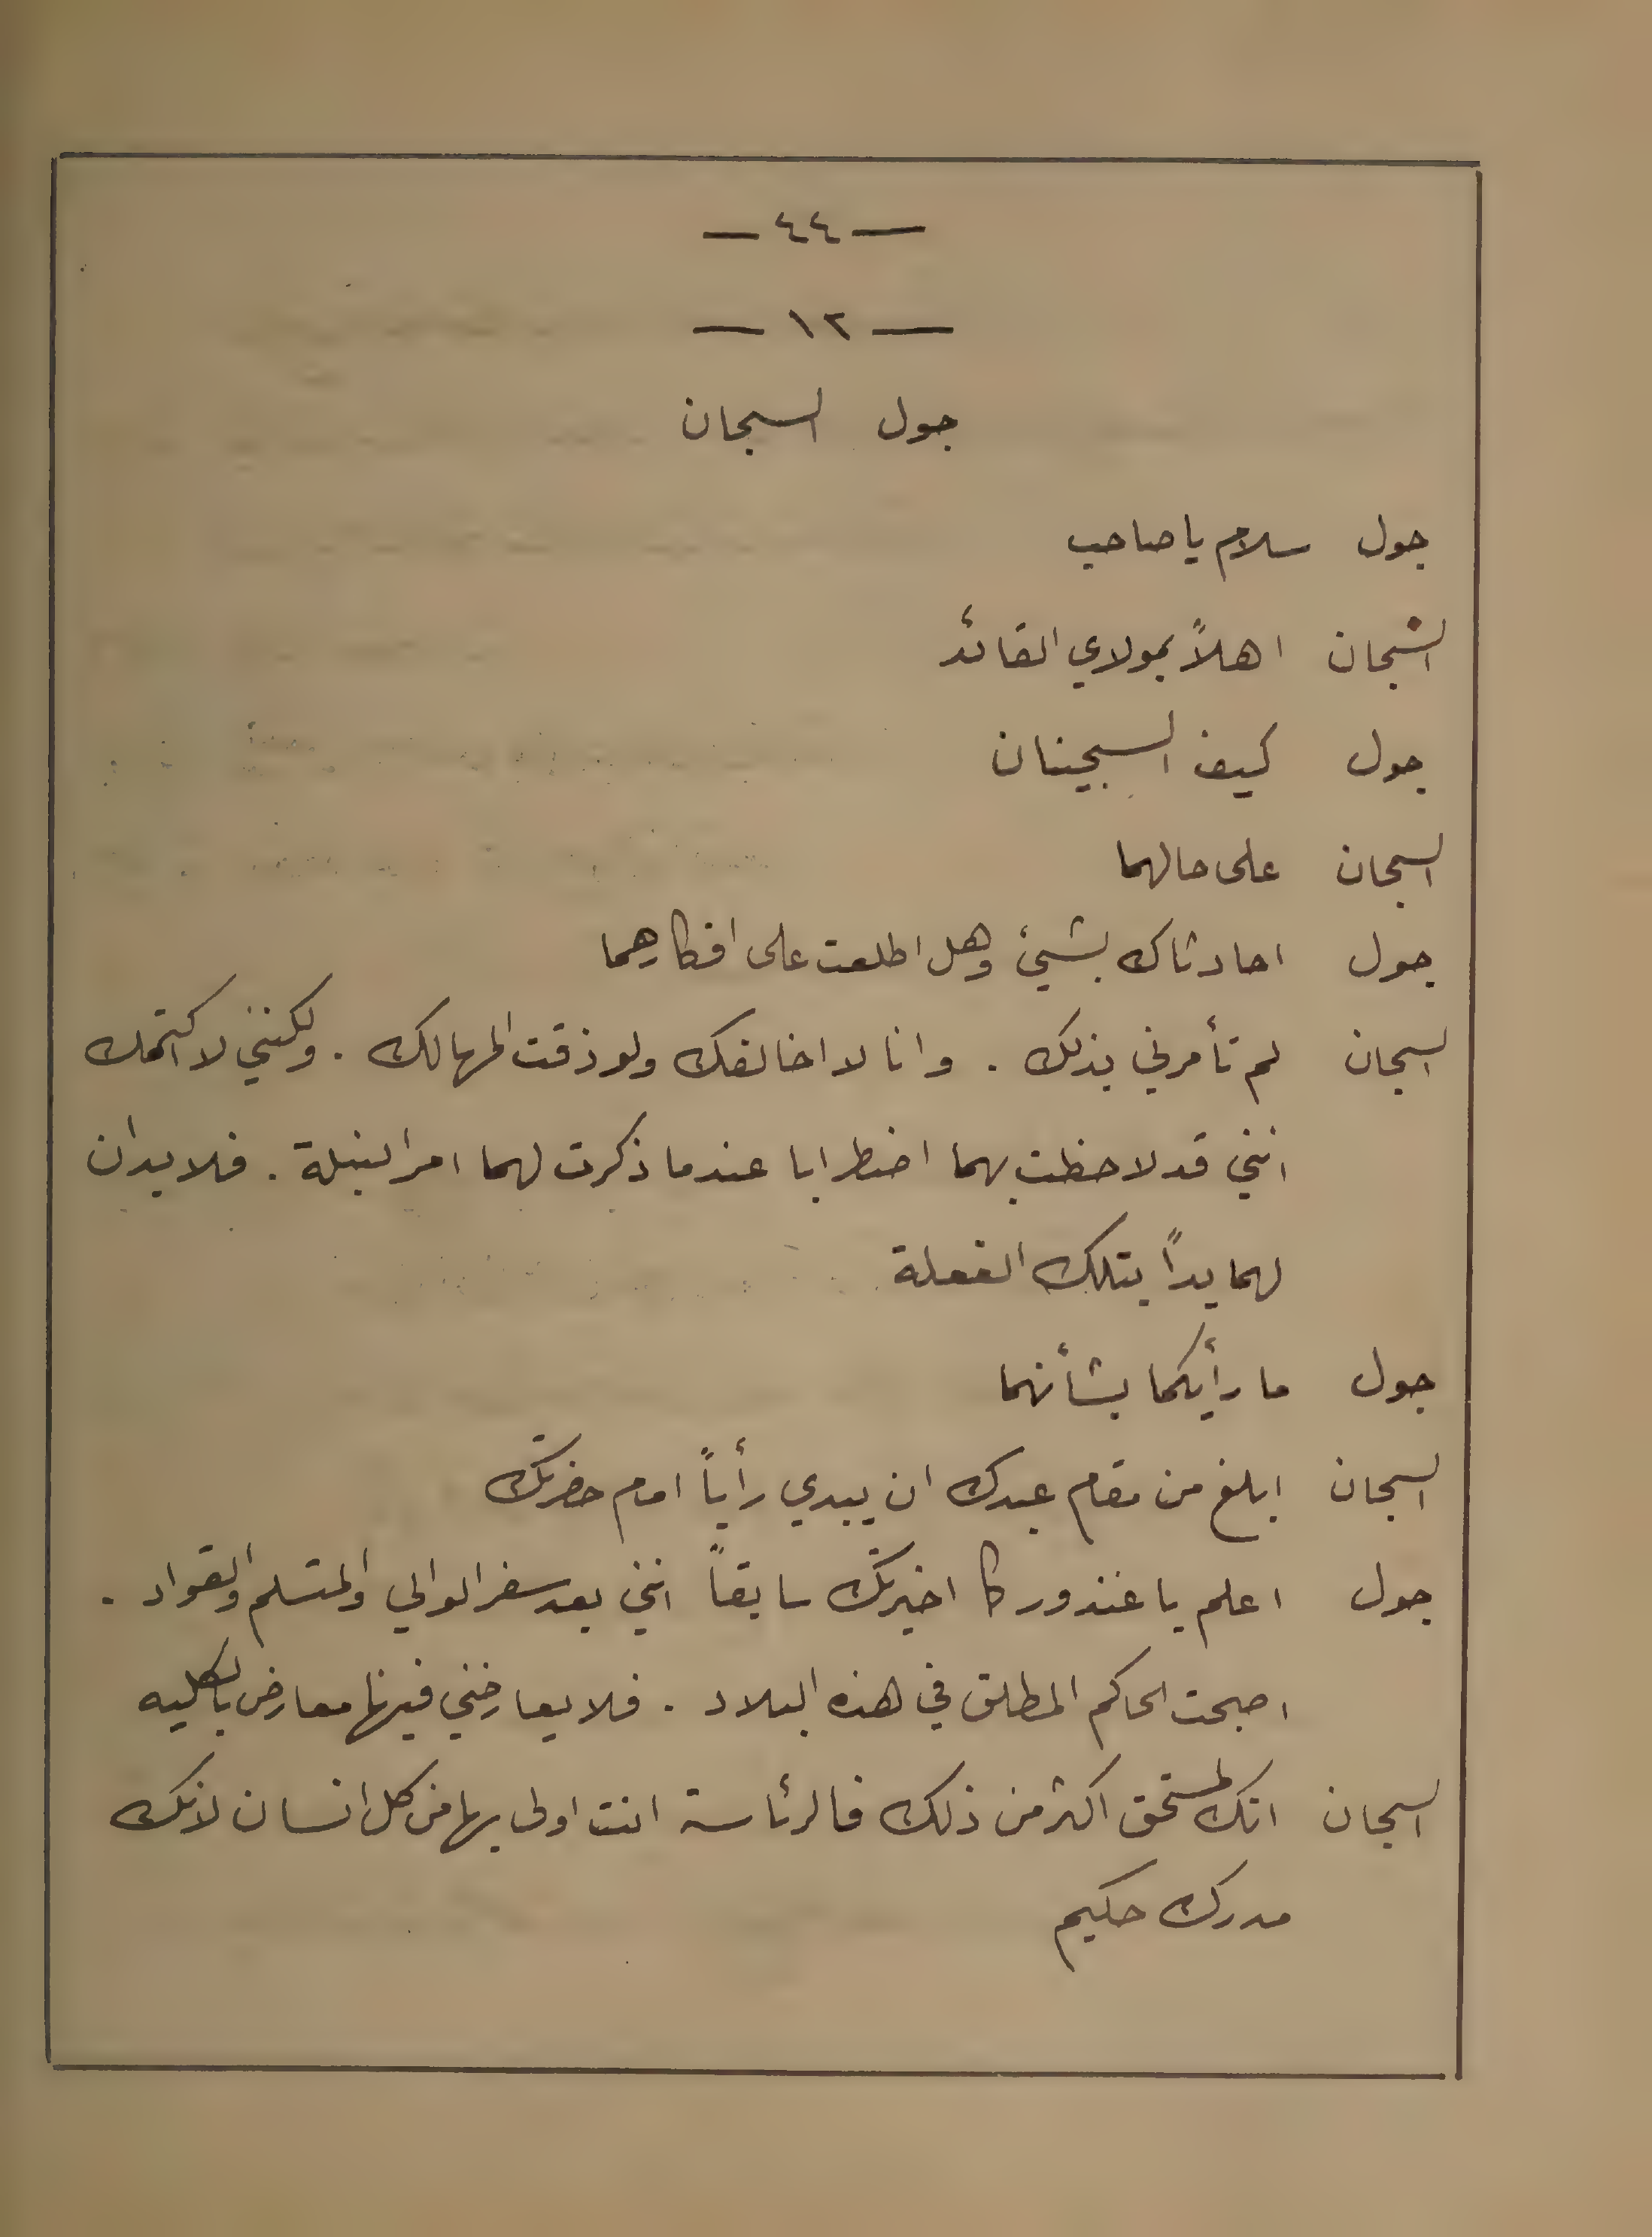 — ٤٤ —
— ١٢ —
جول السجان
جول سلام يا صاحب
السجان اهلاً بمولاي القائد
جول كيف السجينان
السجان على حالهما
جول احادثاك بشيئ وهل اطلعت على افكارهما
السجان لم تأمرني بذلك . وانا لا اخالفك ولو ذقت المهالك . ولكنني لا اكتمك
انني قد لاحظت بهما اضطرابا عندما ذكرت لهما امر النبلة . فلا بد ان
لهما يداً بتلك الفعلة
جول ما رأيكما بشأنهما
السجان ايلغ من مقام عبدك ان يبدي رأياً امام حضرتك
جول اعلم يا غندور كما اخبرتك سابقاً انني بعد سفر الوالي والمتسلم والقواد .
اصبحت الحاكم المطلق في هذه البلاد . فلا يعارضني فيها معارض بالكليه
السجان انك لمستحق اكثر من ذلك فالرئاسة انت اولى بها من كل انسان لانك
مدرك حكيم